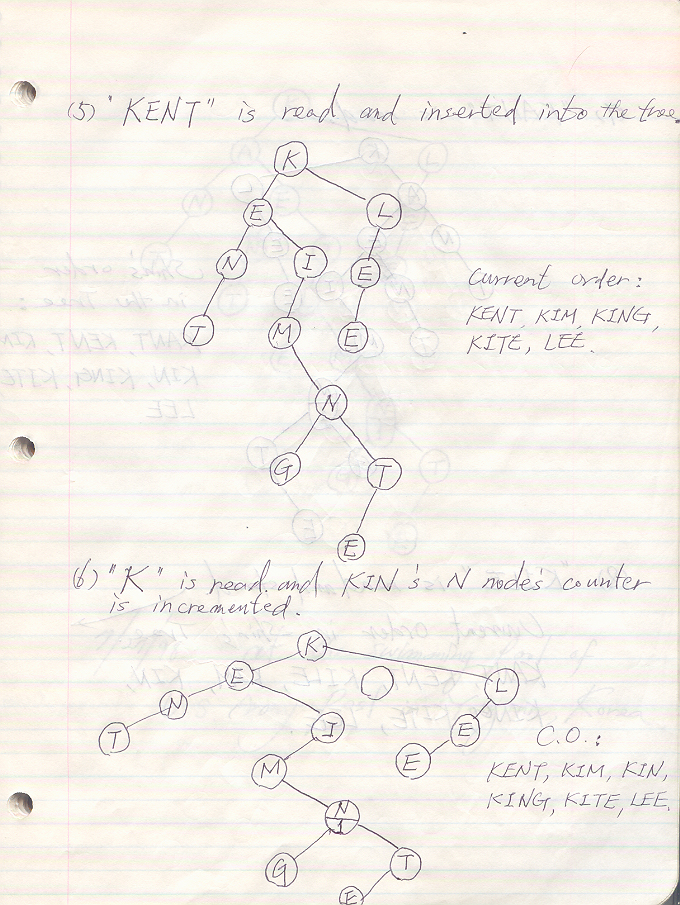 (5) "KENT" is read and inserted into the tree.
K
E L
N I E
T M E
N
G T
E
Current order:
KENT, KIM, KING,
KITE, LEE.
6) "K" is read and KIN's N node's counter
is incremented.
K
E L
N I E
T M E
N
1
G T
E
C.O.:
KENT, KIM, KIN,
KING, KITE, LEE.